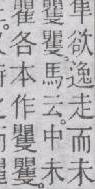 隼欲逸走而未
矍矍。馬云。中未
瞿。各本作矍矍。